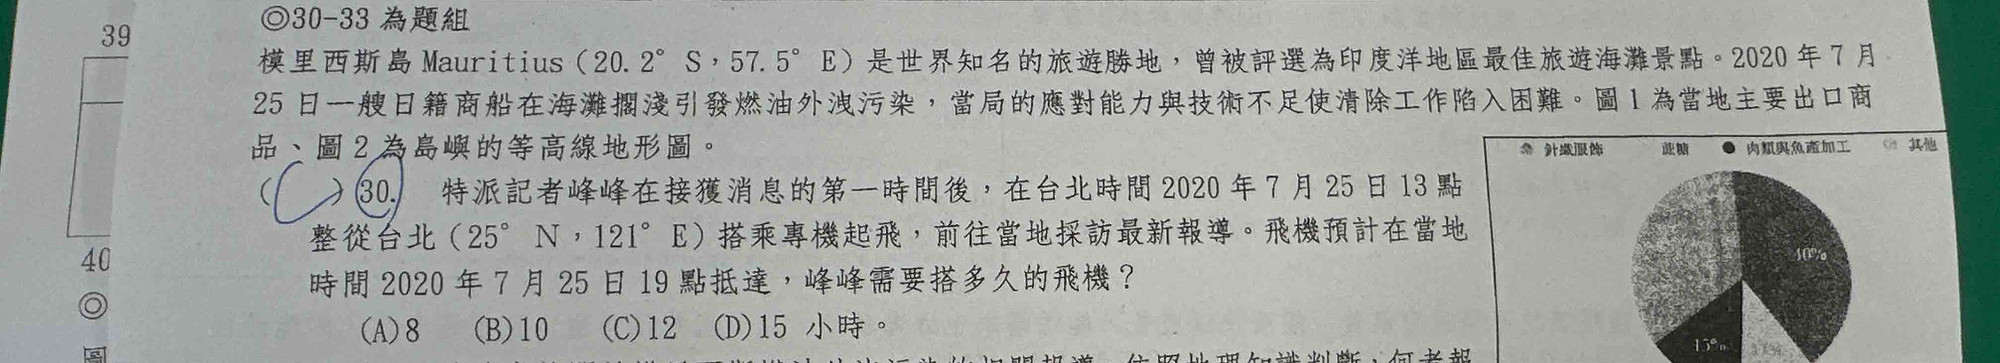 39
◎30-33 為題組
模里西斯島 Mauritius（20.2° S，57.5° E）是世界知名的旅遊勝地，曾被評選為印度洋地區最佳旅遊海灘景點。2020 年 7 月
25 日一艘日籍商船在海灘擱淺引發燃油外洩污染，當局的應對能力與技術不足使清除工作陷入困難。圖 1 為當地主要出口商
品、圖 2 為島嶼的等高線地形圖。
針織服飾 蔗糖 ● 肉類與魚產加工 其他
( )30. 特派記者峰峰在接獲消息的第一時間後，在台北時間 2020 年 7 月 25 日 13 點
整從台北（25° N，121° E）搭乘專機起飛，前往當地採訪最新報導。飛機預計在當地
時間 2020 年 7 月 25 日 19 點抵達，峰峰需要搭多久的飛機？
(A)8 (B)10 (C)12 (D)15 小時。
40%
15%
40
◎
圖